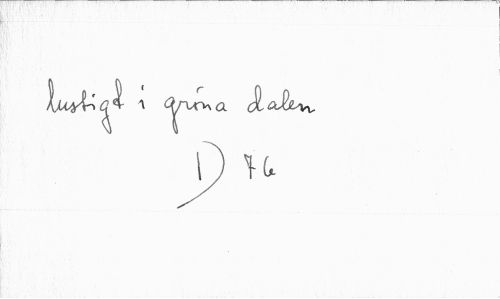 lustigt i gröna dalen
D 76